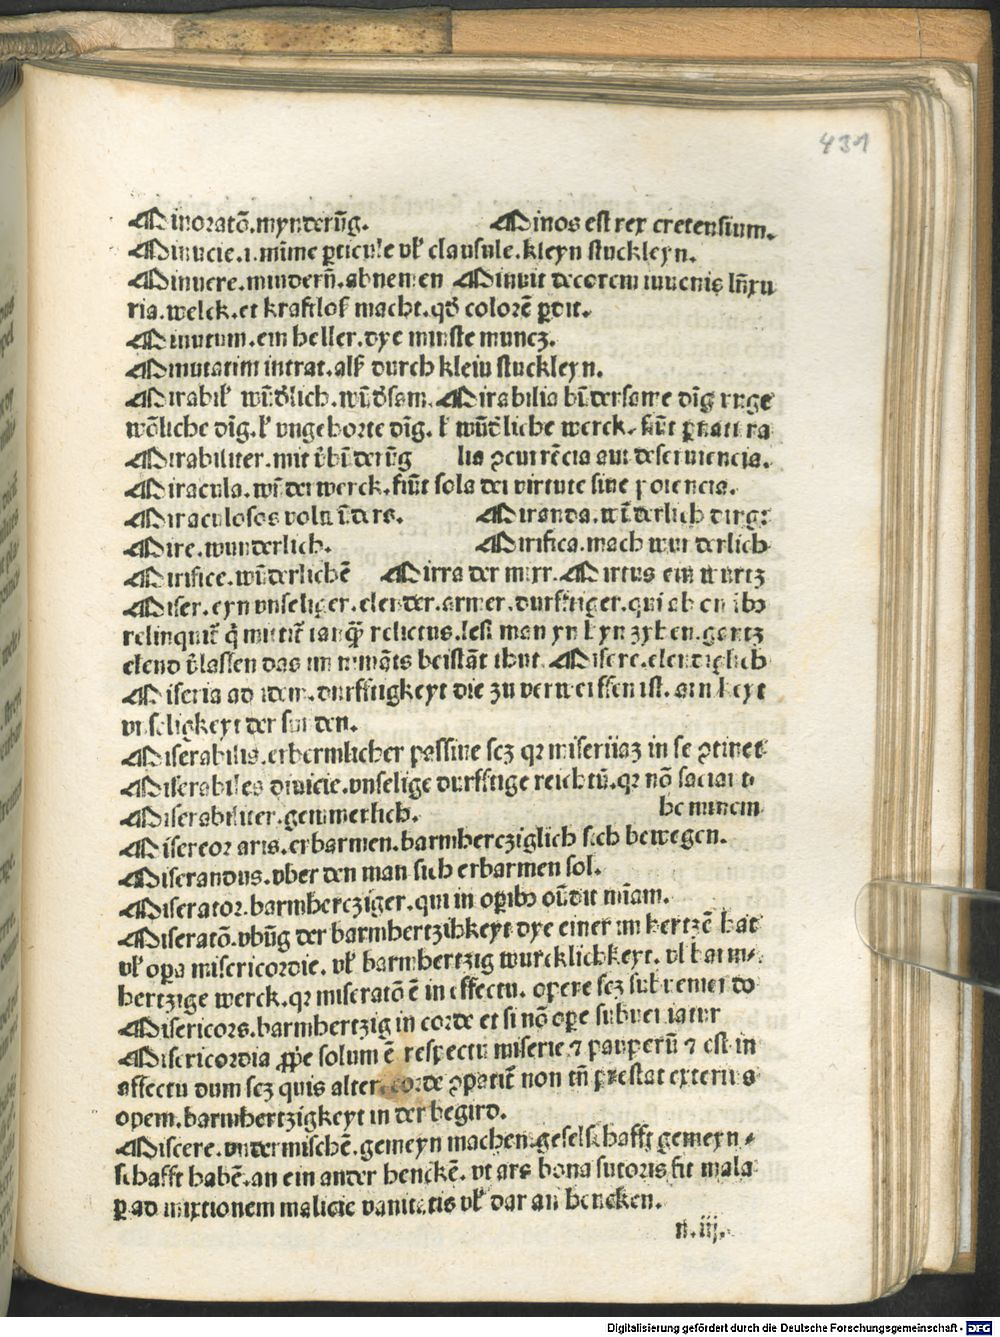 431
Minoratō.mynderūg. Minos est rex cretensium.
Minucie.i.mīime ꝑticule vl' clausule.kleyn stuckleyn.
Minuere.mindern̄.abnemen Minuit decorem iuuenis lux̄u
ria.welck.et kraftlos macht.qď colorē ꝑdit.
Minutum.ein heller.dye minste muncz.
Minutatim intrat.als durch klein stuckleyn.
Mirabil' wūďlich.wūďsam. Mirabilia būdersame dīg vnge
wōliche dīg.l' vngehorte dīg. l' wūďliche werck. sūt ꝑ natura
Mirabiliter.mit v̄būderūg lia ꝯcurrēcia aut deseruiencia.
Miracula.wūderwerck.fiūt sola dei virtute sine potencia.
Miraculosos vol wūders. Miranda.wūderlich ding:
Mire.wunderlich. Mirifica.mach wunderlich
Mirifice.wūderlichē Mirra der mirr. Mirtus ein wurtz
Miser.eyn vnseliger.elender.armer.durfftiger.qui ab omībꝰ
relinquit̄ q̄ mittit̄ tanq̄ȝ relictus.lest man yn hyn zyhen.gantz
elend v̄lassen das im nymāts beistāt thut. Misere.elendiglich
Miseria ad idem.durfftigkeyt die zu verweissen ist. armkeyt
vnseligkeyt der sunden.
Miserabilis.erbermlicher passiue scȝ qꝛ miseriaȝ in se ꝯtinet
Miserabiles diuicie.vnselige durfftige reichtū.qꝛ nō saciant
Miserabiliter.gemmerlich. ho minem
Misereor aris.erbarmen.barmhercziglich sich bewegen.
Miserandus.vber den man sich erbarmen sol.
Miserator.barmhercziger.qui in oꝑibꝰ on̄dit mīam.
Miseratō.vbūg der barmhertzihkeyt dye einer im hertzē hat
vl' oꝑa misericordie. vl' barmhertzig wurcklichkeyt. vl barm⸗
hertzige werck.qꝛ miseratō ē in effectu. opere scȝ subueniendo
Misericors.barmhertzig in corde et si nō oꝑe subueniatur
Misericordia ꝓpe solum ē respectu miserie ⁊ pauperū ⁊ est in
affectu dum scȝ quis alteri corde ꝯpatit̄ non tn̄ prestat exterius
opem.barmhertzigkeyt in der begird.
Miscere.vntermischē.gemeyn machen.geselschafft gemeyn⸗
schafft habē.an ein ander henckē. vt ars bona sutoris fit mala
ꝑ ad mixtionem malicie vanitatis vl' dar an hencken.
n.iij.
Digitalisierung gefördert durch die Deutsche Forschungsgemeinschaft - DFG